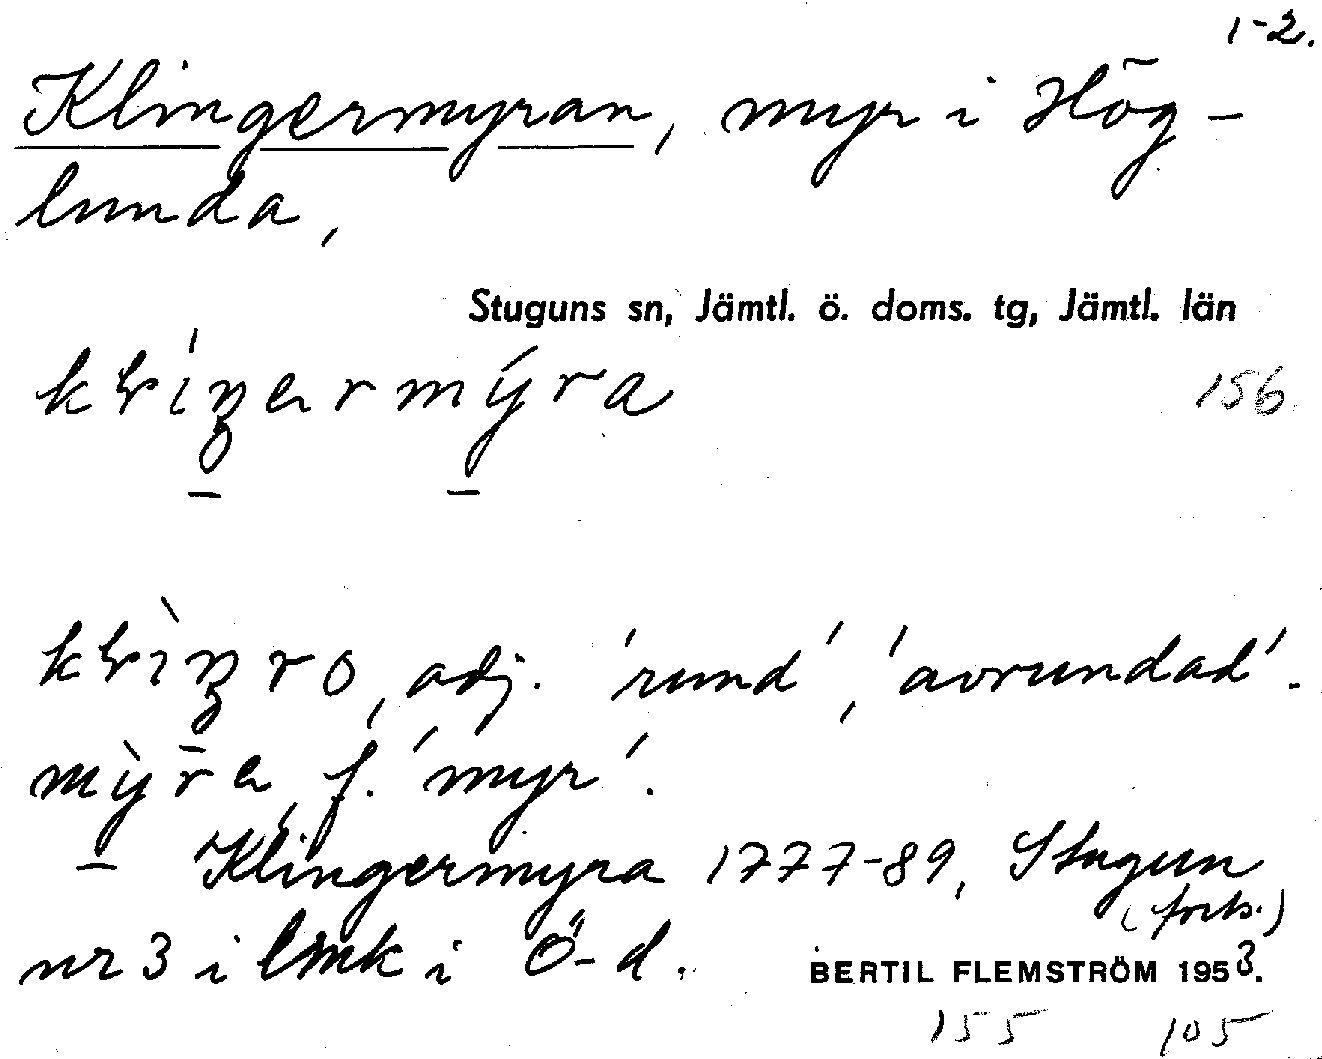 1-2.
Klingermyran, myr i Hög-
lunda,
Stuguns sn, Jämtl. ö. doms. tg, Jämtl. län
156
adj. 'rund', 'avrundad'.
f. 'myr'.
– Klingermyra 1777-89, Stugun
(forts.)
nr 3 i lmk i Ö-d.
BERTIL FLEMSTRÖM 1953.
155 105